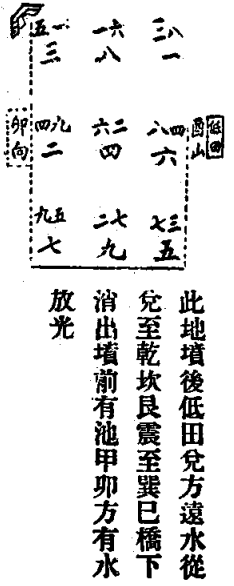 五一 一六 三八
三 八 一
四九 六二 八四
二 四 六
九五 二七 七三
七 九 五
低田
酉山
卯向
此地墳後低田兌方遠水從
兌至乾坎艮震至巽巳橋下
消出墳前有池甲卯方有水
放光